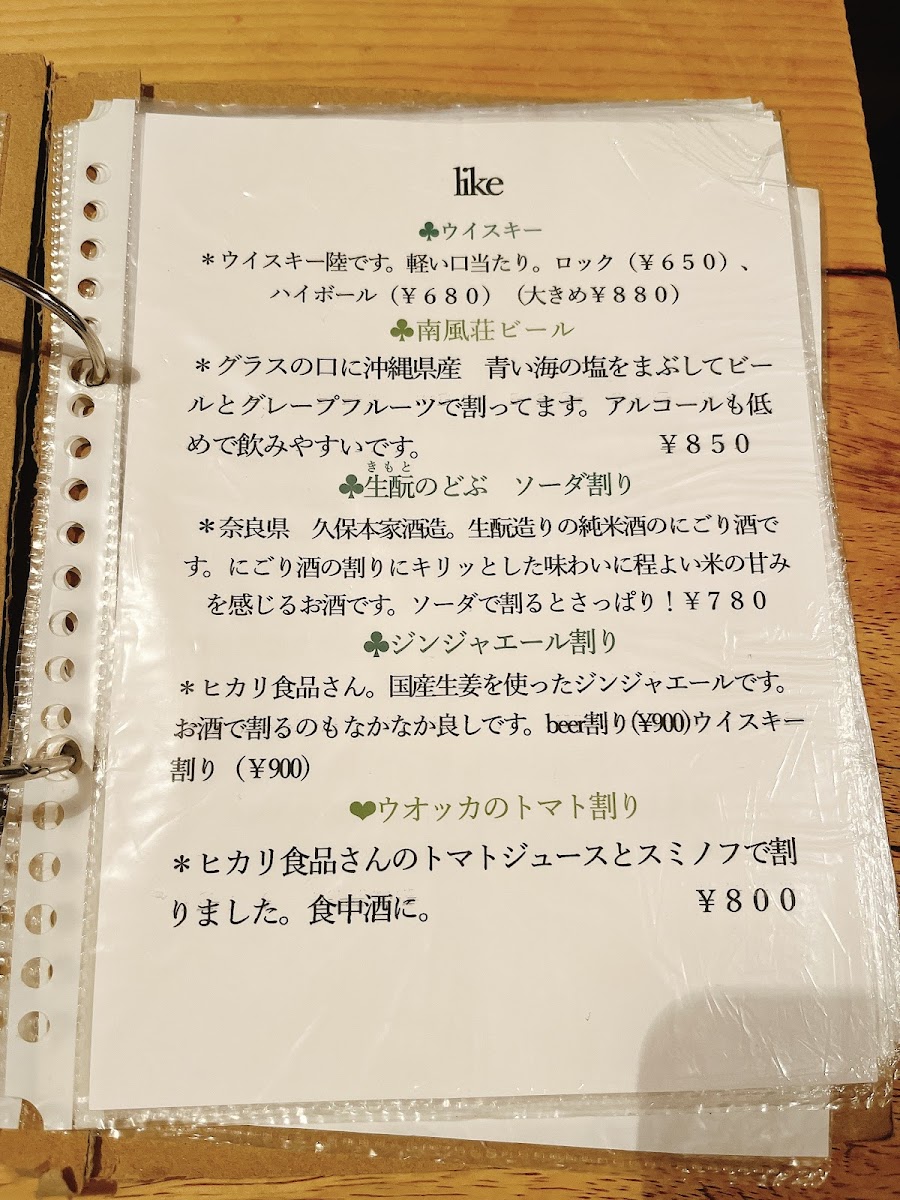 like
♣ウイスキー
＊ウイスキー陸です。軽い口当たり。ロック（￥６５０）、
ハイボール（￥６８０）（大きめ￥８８０）
♣南風荘ビール
＊グラスの口に沖縄県産　青い海の塩をまぶしてビー
ルとグレープフルーツで割ってます。アルコールも低
めで飲みやすいです。　￥８５０
きもと
♣生酛のどぶ　ソーダ割り
＊奈良県　久保本家酒造。生酛造りの純米酒のにごり酒で
す。にごり酒の割りにキリッとした味わいに程よい米の甘み
を感じるお酒です。ソーダで割るとさっぱり！￥７８０
♣ジンジャエール割り
＊ヒカリ食品さん。国産生姜を使ったジンジャエールです。
お酒で割るのもなかなか良しです。beer割り(¥900)ウイスキー
割り（￥900）
❤ウオッカのトマト割り
＊ヒカリ食品さんのトマトジュースとスミノフで割
りました。食中酒に。　￥８００